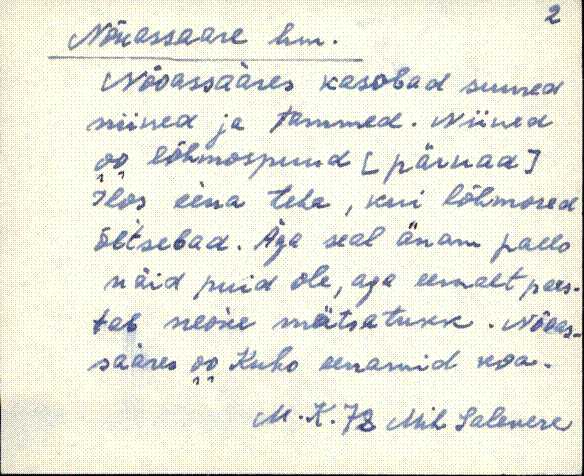 2
Nõuassaare hm.
Nõoassaares kasobad suured
niined ja tammed. Niined
oo lõhmospuud [pärnad]
Ilos eina teha, kui lõhmosed
õitsebad. Aga seal änam pallo
näid puid ole, aga eemalt paes-
tab neoke mätsatukk. Nõoas-
sääres oo Kuho eenamid koa.
M. K. 78 Mih Salevere